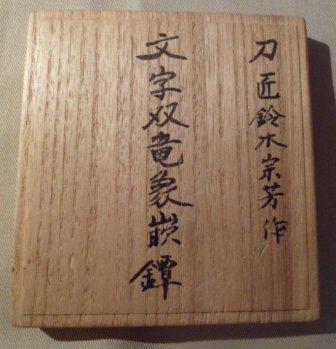 刀匠鈴木宗芳作
文字双竜象嵌鐔